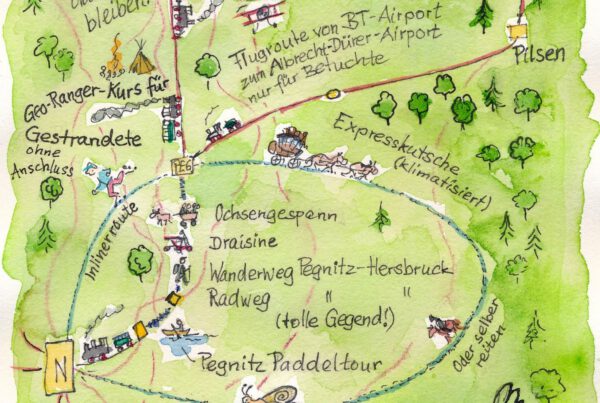 bleiben!
Flugroute von BT-Airport
zum Albrecht-Dürer-Airport
nur für Betuchte
Pilsen
Geo-Ranger-Kurs für
Gestrandete
ohne
Anschluss
Expresskutsche
(klimatisiert)
PEG
Inlinerroute
Ochsengespann
Draisine
Wanderweg Pegnitz-Hersbruck
Radweg " "
(tolle Gegend!)
Oder selber
reiten
N
Pegnitz Paddeltour